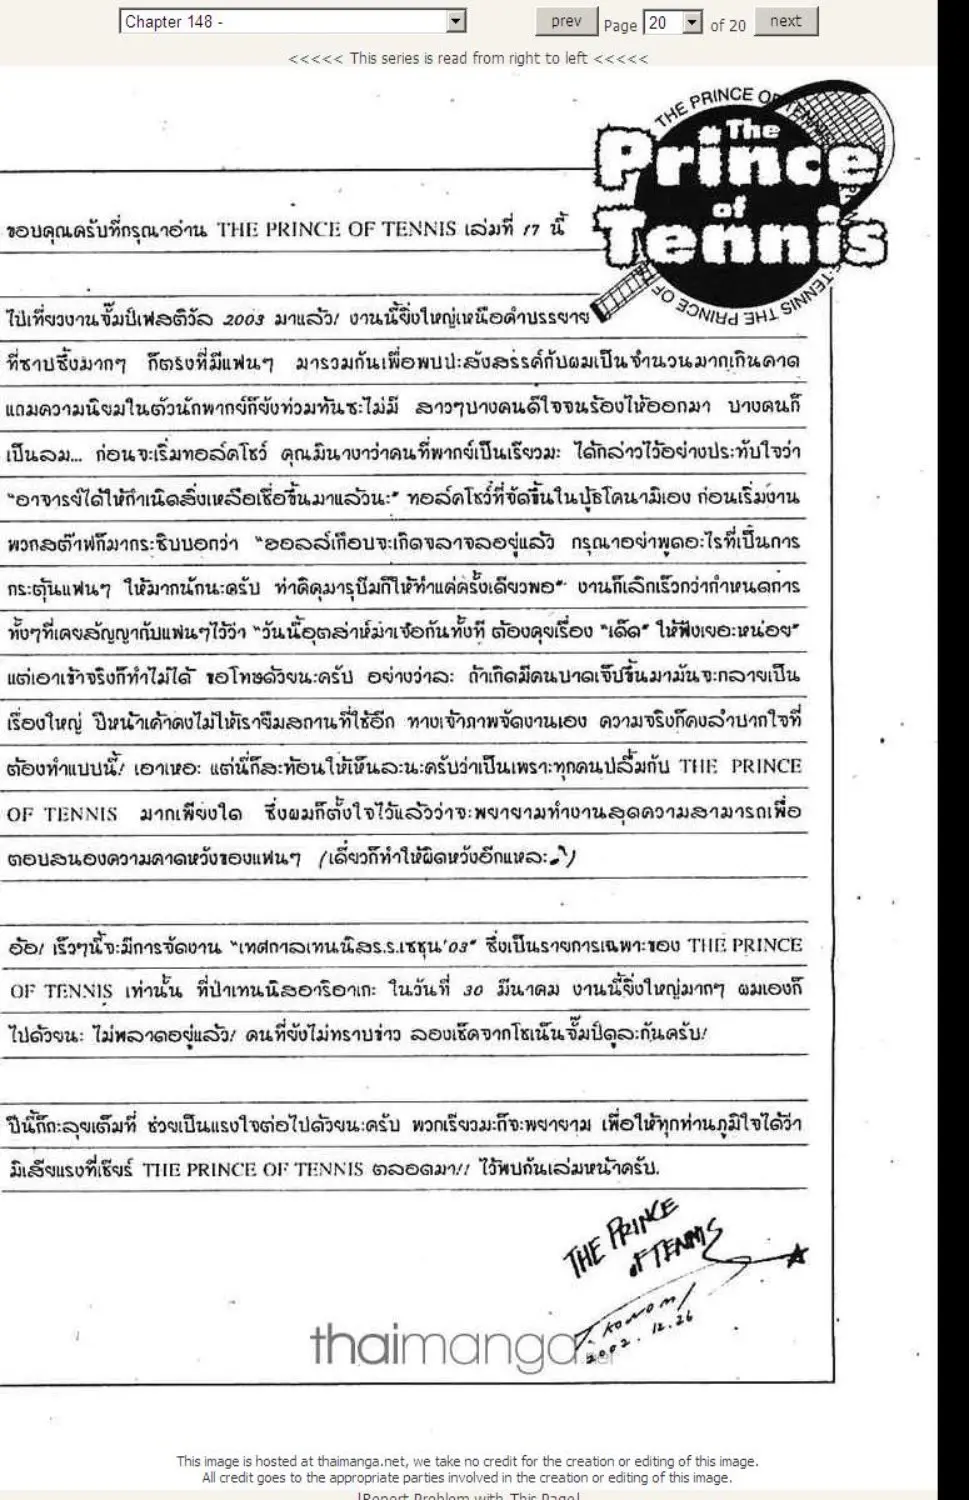 Chapter 148 -
prev Page 20 of 20 next
<<<<< This series is read from right to left <<<<<
THE PRINCE OF TENNIS
The
Prince
of
Tennis
THE PRINCE OF TENNIS
ขอบคุณครับที่กรุณาอ่าน THE PRINCE OF TENNIS เล่มที่ 17 นี้
ไปเที่ยวงานจั๊มป์เฟสติวัล 2003 มาแล้ว! งานนี้ยิ่งใหญ่เหนือคำบรรยาย
ที่ซาบซึ้งมากๆ ก็ตรงที่มีแฟนๆ มารวมกันเพื่อพบปะสังสรรค์กับผมเป็นจำนวนมากเกินคาด
แถมความนิยมในตัวนักพากย์ก็ยังท่วมท้นซะไม่มี สาวๆบางคนดีใจจนร้องไห้ออกมา บางคนก็
เป็นลม... ก่อนจะเริ่มทอล์คโชว์ คุณมินางาว่าคนที่พากย์เป็นเรียวมะ ได้กล่าวไว้อย่างประทับใจว่า
"อาจารย์ได้ให้กำเนิดสิ่งเหลือเชื่อขึ้นมาแล้วนะ" ทอล์คโชว์ที่จัดขึ้นในบู๊ธโคนามิเอง ก่อนเริ่มงาน
พวกสต๊าฟก็มากระซิบบอกว่า "ฮอลล์เกือบจะเกิดจลาจลอยู่แล้ว กรุณาอย่าพูดอะไรที่เป็นการ
กระตุ้นแฟนๆ ให้มากนักนะครับ ท่าดีดุมารุบีมก็ให้ทำแค่ครั้งเดียวพอ" งานก็เลิกเร็วกว่ากำหนดการ
ทั้งๆที่เคยสัญญากับแฟนๆไว้ว่า "วันนี้อุตส่าห์มาเจอกันทั้งที ต้องคุยเรื่อง "เด็ด" ให้ฟังเยอะหน่อย"
แต่เอาเข้าจริงก็ทำไม่ได้ ขอโทษด้วยนะครับ อย่างว่าละ ถ้าเกิดมีคนบาดเจ็บขึ้นมามันจะกลายเป็น
เรื่องใหญ่ ปีหน้าเค้าคงไม่ให้เรายืมสถานที่ใช้อีก ทางเจ้าภาพจัดงานเอง ความจริงก็คงลำบากใจที่
ต้องทำแบบนี้! เอาเหอะ แต่นี่ก็สะท้อนให้เห็นละนะครับว่าเป็นเพราะทุกคนปลื้มกับ THE PRINCE
OF TENNIS มากเพียงใด ซึ่งผมก็ตั้งใจไว้แล้วว่าจะพยายามทำงานสุดความสามารถเพื่อ
ตอบสนองความคาดหวังของแฟนๆ (เดี๋ยวก็ทำให้ผิดหวังอีกแหละ♪)
อ้อ! เร็วๆนี้จะมีการจัดงาน "เทศกาลเทนนิสร.ร.เซชุน'03" ซึ่งเป็นรายการเฉพาะของ THE PRINCE
OF TENNIS เท่านั้น ที่ป่าเทนนิสอาริอาเกะ ในวันที่ 30 มีนาคม งานนี้ยิ่งใหญ่มากๆ ผมเองก็
ไปด้วยนะ ไม่พลาดอยู่แล้ว! คนที่ยังไม่ทราบข่าว ลองเช็คจากโชเน็นจั๊มป์ดูละกันครับ!
ปีนี้ก็กะลุยเต็มที่ ช่วยเป็นแรงใจต่อไปด้วยนะครับ พวกเรียวมะก็จะพยายาม เพื่อให้ทุกท่านภูมิใจได้ว่า
มิเสียแรงที่เชียร์ THE PRINCE OF TENNIS ตลอดมา!! ไว้พบกันเล่มหน้าครับ.
THE PRINCE
OF TENNIS
T. KONOMI
2002.12.26
thaimanga.net
This image is hosted at thaimanga.net, we take no credit for the creation or editing of this image.
All credit goes to the appropriate parties involved in the creation or editing of this image.
[Report Problem with This Page]